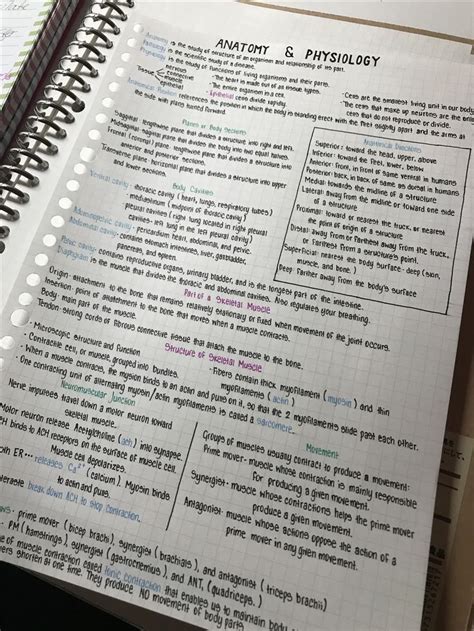 ANATOMY & PHYSIOLOGY
Anatomy is the study of structure of an organism and relationship of its part.
Physiology is the study of functions of living organisms and their parts.
Tissue
nervous
connective
muscle
epithelial
• The heart is made out of as tissue types.
• The entire organism is a cell.
• Epithelial cells divide rapidly.
• Cells are the smallest living unit in our body
• The cells that make up neurons are the
cells that do not reproduce or divide.
Anatomical Position references the position in which the body is standing erect with the feet slightly apart and the arms at
the side with palms turned forward.
Planes or Body Sections
Sagittal: lengthwise plane that divides a structure into right and left.
Midsagittal: sagittal that divides the body into two equal halves.
and lower sections.
Body Cavities
Ventral cavity - thoracic cavity (heart, lungs, respiratory tubes)
- mediastinum (midpoint of thoracic cavity)
- pleural cavities (right lung located in right pleural
cavity - left lung in the left pleural cavity)
Abdominopelvic cavity - pericardial, heart, abdominal, and pelvic.
Abdominal cavity: contains stomach, intestines, liver, gallbladder,
pancreas, and spleen.
Pelvic cavity: contains reproductive organs, urinary bladder, and is the longest part of the intestine.
Diaphragm is the muscle that divides the thoracic and abdominal cavities. Also regulates your breathing.
Anatomical Directions
Superior: toward the head, upper, above
Inferior: toward the feet, lower, below
Anterior: front, in front of same ventral in humans
Posterior: back, in back of, same as dorsal in humans
Medial: towards the midline of a structure
Lateral: away from the midline or toward one side
of a structure.
Proximal: toward or nearest the trunk, or nearest
the point of origin of a structure
Distal: away from or farthest away from the trunk,
or farthest from a structure's point.
Superficial: nearest the body surface - deep (skin,
muscle, and bone.)
Deep: farther away from the body's surface
Part of a Skeletal Muscle
Origin: attachment to the bone that remains relatively stationary or fixed when movement of the joint occurs.
Insertion: point of attachment to the bone that moves when a muscle contracts.
Body: main part of the muscle.
Tendon: strong cords of fibrous connective tissue that attach the muscle to the bone.
Structure of Skeletal Muscle
• Microscopic structure and function
• Contractile cell, or muscle, grouped into bundles.
• Fibers contain thick myofilament (myosin) and thin
myofilaments (actin)
• When a muscle contracts, the myosin binds to an actin and pulls on it, so that the 2 myofilaments slide past each other.
• One contracting unit of alternating myosin/actin myofilaments is called a sarcomere.
Neuromuscular Junction
Nerve impulses travel down a motor neuron toward
skeletal muscle.
Motor neuron release Acetylcholine (ach) into synapse.
ACH binds to ACH receptors on the surface of muscle cell.
Muscle cell depolarizes.
ER... releases Ca²⁺ (calcium). Myosin binds
to actin and pulls.
break down ACH to stop contraction.
Movement
Groups of muscles usually contract to produce a movement:
Prime mover- muscle whose contraction is mainly responsible
for producing a given movement.
Synergist- muscle whose contractions helps the prime mover
produce a given movement.
Antagonist- muscle whose actions oppose the action of a
prime mover in any given movement.
- prime mover (bicep brachi), synergist (brachialis), and antagonist (triceps brachii)
- PM (hamstrings), synergist (gastrocnemius), and ANT. (quadriceps.)
of muscle contraction called tonic contraction that enables us to maintain body
shorten at one time. They produce NO movement of body parts.